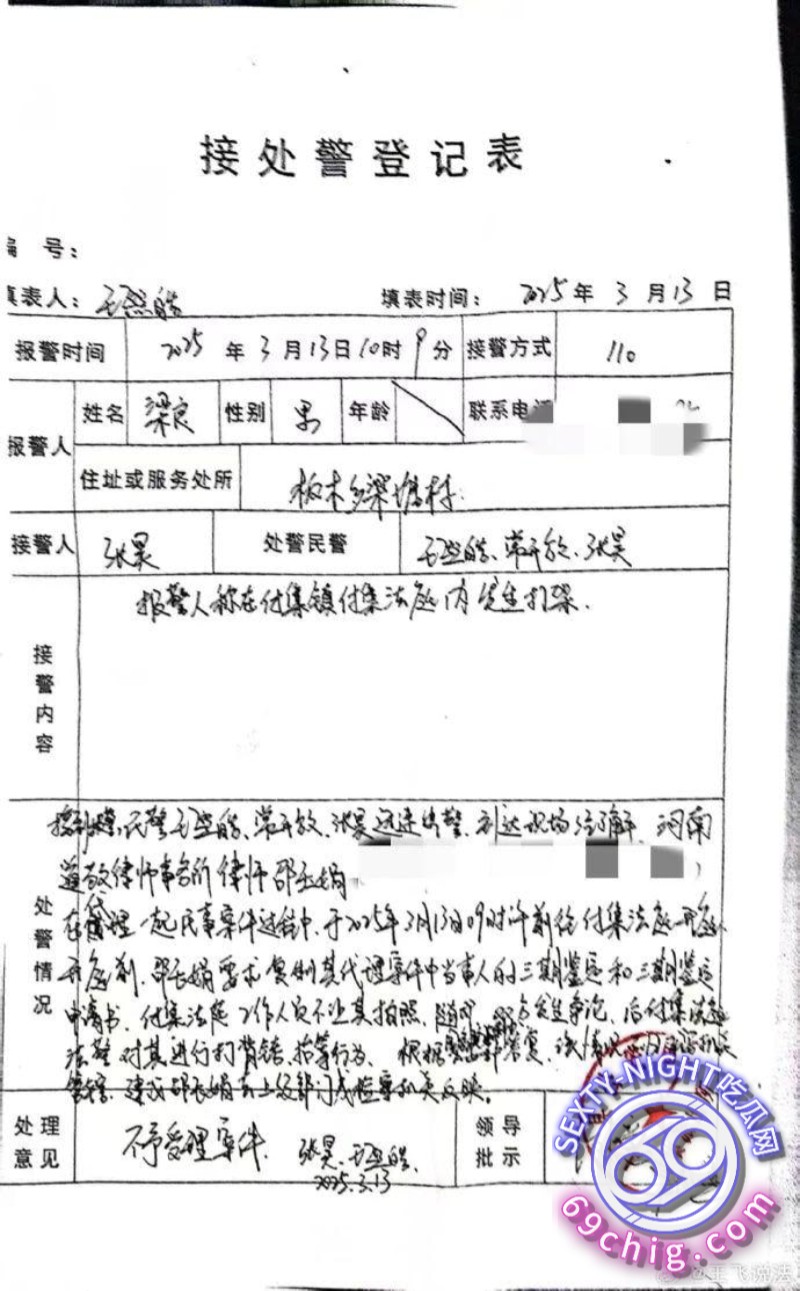 接处警登记表
编 号：
填表人： 填表时间： 2025 年 3 月 13 日
报警时间 2025 年 3 月 13 日 10 时 9 分 接警方式 110
报警人 姓名 梁良 性别 男 年龄 联系电话
住址或服务处所 板木乡梁塘村
接警人 张昊 处警民警 常开放、张昊
接警内容 报警人称在付集镇付集法庭内发生打架.
处警情况
接到报警，民警 常开放、张昊迅速出警，到达现场经了解，河南
律师事务所律师邵玉娟
在代理一起民事案件过程中，于2025年3月13日09时许前往付集法庭开庭，
开庭前，邵玉娟要求复制其代理案件中当事人的三期鉴定和三期鉴定
申请书，付集法庭工作人员不让其拍照，随或双方发生争论，后付集法庭
法警对其进行打背铐、掐等行为，根据 答复，该情况
管辖，建议邵玉娟去上级部门或检察机关反映。
处理意见 不予受理案件. 张昊、 领导批示
2025.3.13
SEXTY-NIGHT吃瓜网
69
69chig.com
@王飞说法